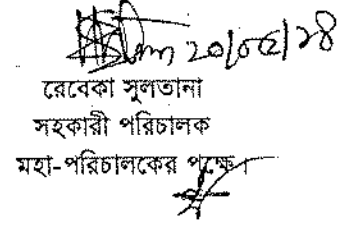 ২০/০৫/১৪
রেবেকা সুলতানা
সহকারী পরিচালক
মহা-পরিচালকের পক্ষে।